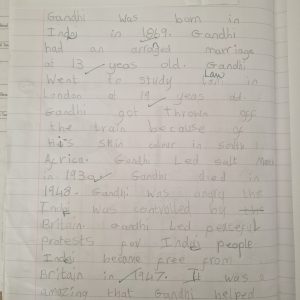 Gandhi was born in
India in 1869. Gandhi
had an arranged marriage
at 13 years old. Gandhi
went to study Law in
London at 19 years old
Gandhi got thrown off
the train because of
his skin colour in south
Africa. Gandhi Led salt March
in 1930 Gandhi died in
1948. Gandhi was angry the
India was controlled by the
Britain. Gandhi Led peaceful
protests for India people
India became free from
Britain in 1947. It was a
amazing that Gandhi helped